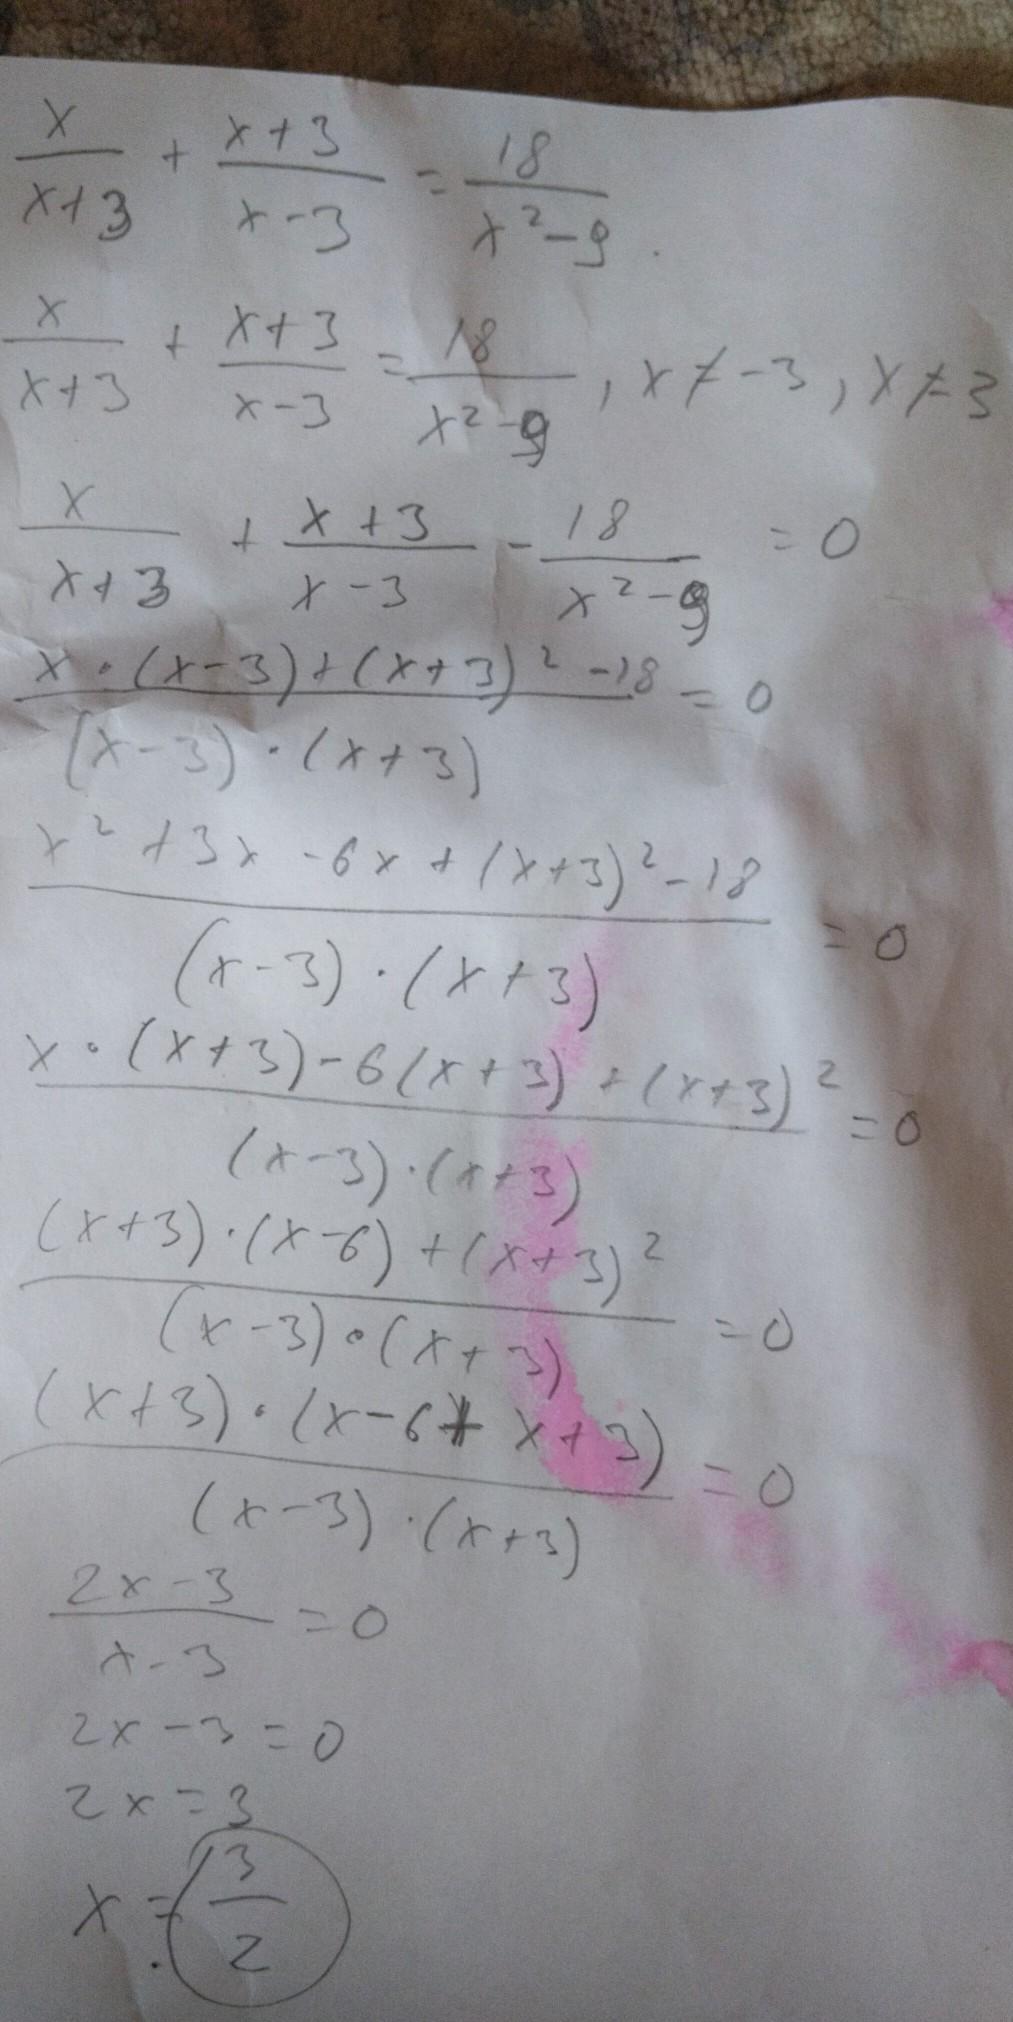 x/(x+3) + (x+3)/(x-3) = 18/(x²-9).
x/(x+3) + (x+3)/(x-3) = 18/(x²-9), x ≠ -3, x ≠ 3
x/(x+3) + (x+3)/(x-3) - 18/(x²-9) = 0
(x·(x-3)+(x+3)²-18)/((x-3)·(x+3)) = 0
(x²+3x-6x+(x+3)²-18)/((x-3)·(x+3)) = 0
(x·(x+3)-6(x+3)+(x+3)²)/((x-3)·(x+3)) = 0
((x+3)·(x-6)+(x+3)²)/((x-3)·(x+3)) = 0
((x+3)·(x-6+x+3))/((x-3)·(x+3)) = 0
(2x-3)/(x-3) = 0
2x-3=0
2x=3
x = 3/2